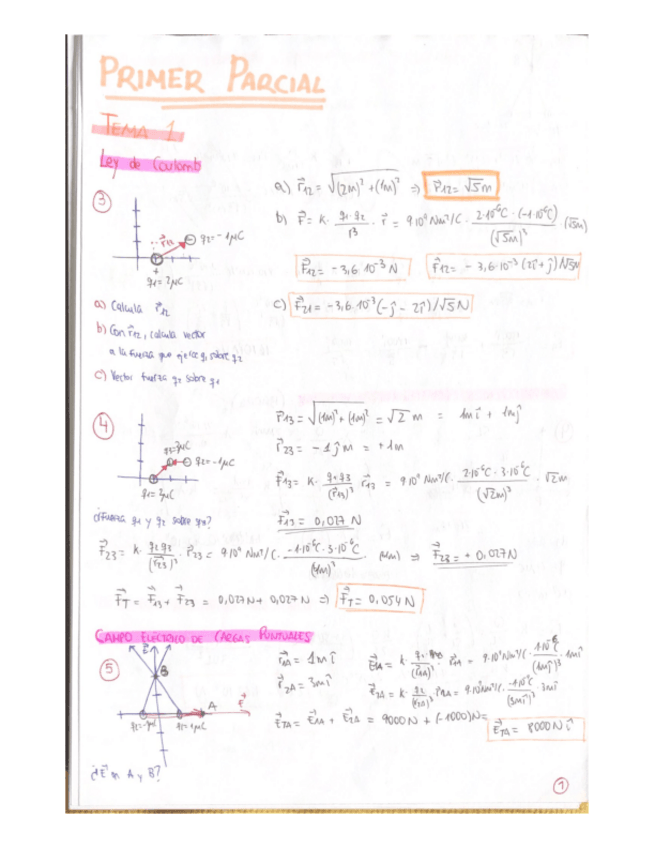 PRIMER PARCIAL
TEMA 1
Ley de Coulomb
③
q₂=-1μC
r⃗₁₂
+
q₁= 2μC
a) Calcula r⃗₁₂
b) Con r⃗₁₂, calcula vector
a la fuerza que ejerce q₁ sobre q₂
c) Vector fuerza q₂ sobre q₁
a) r⃗₁₂ = √(2m)² + (1m)² ⇒ r⃗₁₂= √5m
b) F⃗= K· q₁·q₂/r³ · r⃗ = 9·10⁹Nm²/C · 2·10⁻⁶C·(-1·10⁻⁶C)/(√5m)³ · (√5m)
F⃗₁₂= -3,6·10⁻³N F⃗₁₂= -3,6·10⁻³(2î+ĵ)/√5N
c) F⃗₂₁= -3,6·10⁻³(-ĵ-2î)/√5N
④
q₃=3μC
q₂=-1μC
q₁=2μC
¿Fuerza q₁ y q₂ sobre q₃?
r⃗₁₃= √(1m)²+(1m)² = √2 m = 1mî + 1mĵ
r⃗₂₃= -1ĵm = +1m
F⃗₁₃= K· q₁·q₃/(r⃗₁₃)³ · r⃗₁₃ = 9·10⁹Nm²/C · 2·10⁻⁶C·3·10⁻⁶C/(√2m)³ · √2m
F⃗₁₃= 0,027N
F⃗₂₃= K· q₂q₃/(r⃗₂₃)³ · r⃗₂₃= 9·10⁹Nm²/C · -1·10⁻⁶C·3·10⁻⁶C/(1m)³ · (1m) ⇒ F⃗₂₃= +0,027N
F⃗T= F⃗₁₃+F⃗₂₃ = 0,027N+0,027N ⇒ F⃗T= 0,054N
CAMPO ELÉCTRICO DE CARGAS PUNTUALES
⑤
E⃗
B
A
E⃗
q₂=-1μC q₁=+1μC
¿E⃗ en A y B?
r⃗₁A= 1mî
r⃗₂A= 3mî
E⃗₁A= K· r⃗₁A= 9·10⁹Nm²/C· 1·10⁻⁶C/(1mî)³ · 1mî
E⃗₂A= K· q₂/(r⃗₂A)³ · r⃗₂A= 9·10⁹Nm²/C· -1·10⁻⁶C/(3mî)³ · 3mî
E⃗TA= E⃗₁A + E⃗₂A = 9000N + (-1000)N=
E⃗TA= 8000Nî
①